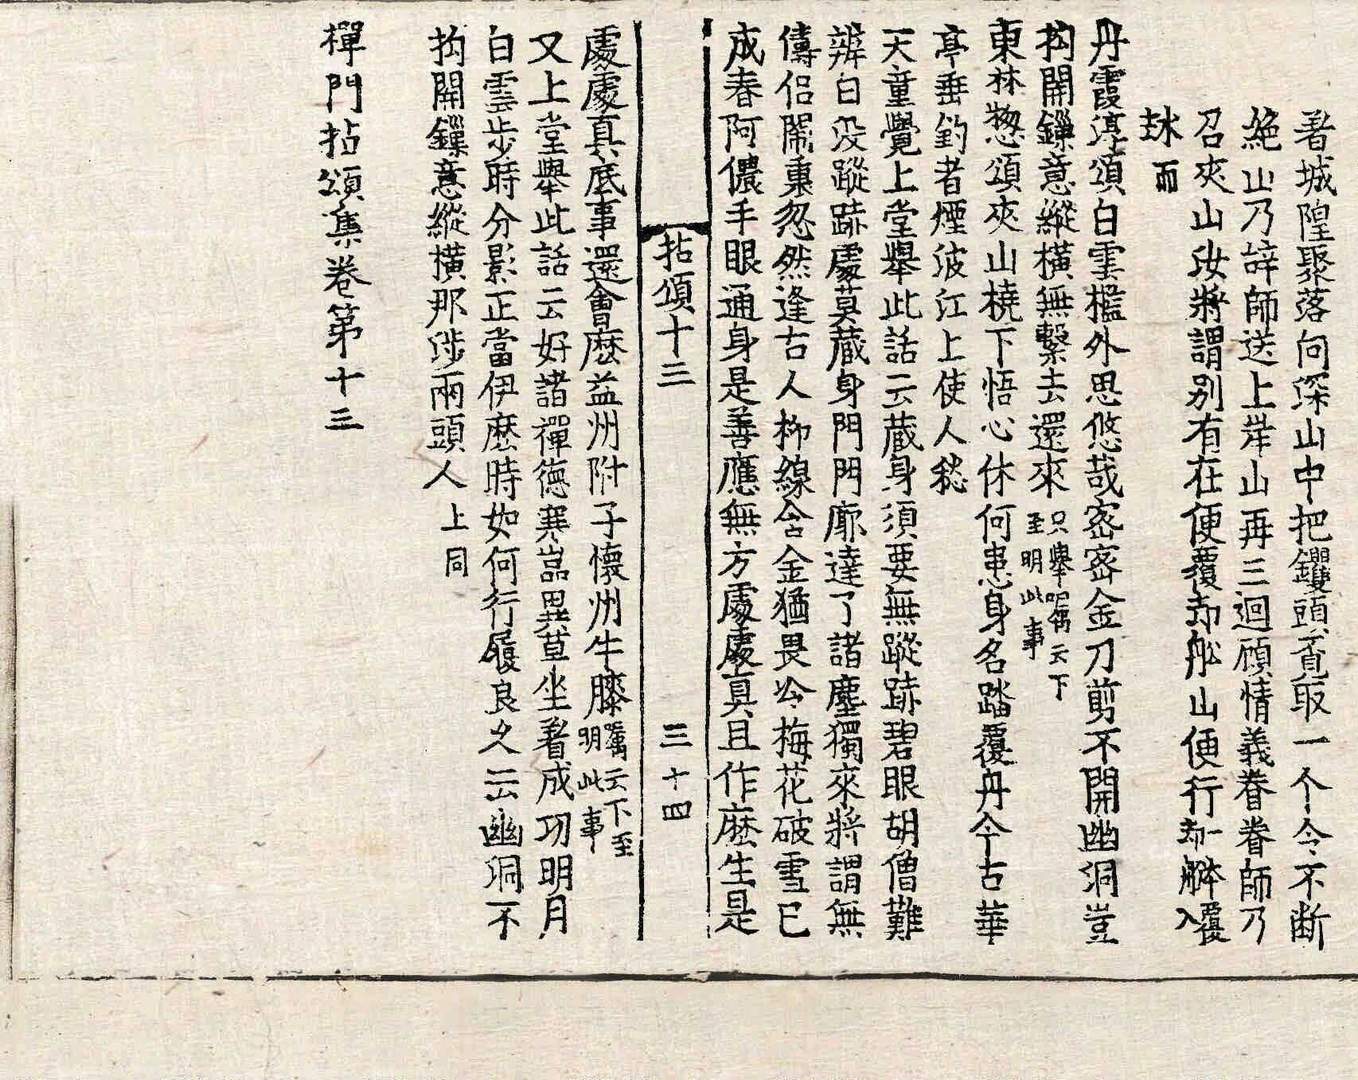 著城隍聚落向深山中把钁頭覓取一个令不断
絶山乃辞師送上岸山再三迴顧情義眷眷師乃
召夾山汝將謂別有在便覆却船山便行一本却覆
入水而
丹霞淳頌白雲檻外思悠哉密密金刀剪不開幽洞豈
拘關鏁意縱橫無繫去還來只舉囑云下至明此事
東林惣頌夾山橈下悟心休何患身名踏覆舟今古華
亭垂釣者煙波江上使人愁
天童覺上堂舉此話云藏身須要無蹤跡碧眼胡僧難
辨白没蹤跡處莫藏身門門廓達了諸塵獨來將謂無
儔侶閙裏忽然逢古人柳線含金猶畏冷梅花破雪已
成春阿儂手眼通身是善應無方處處真且作麽生是
拈頌十三 三十四
處處真底事還會麽益州附子懷州牛膝囑云下至明此事
又上堂舉此話云好諸禪德寒嵓異草坐著成功明月
白雲步時分影正當伊麽時如何行履良久云幽洞不
拘關鏁意縱橫那涉兩頭人上同
禪門拈頌集卷第十三